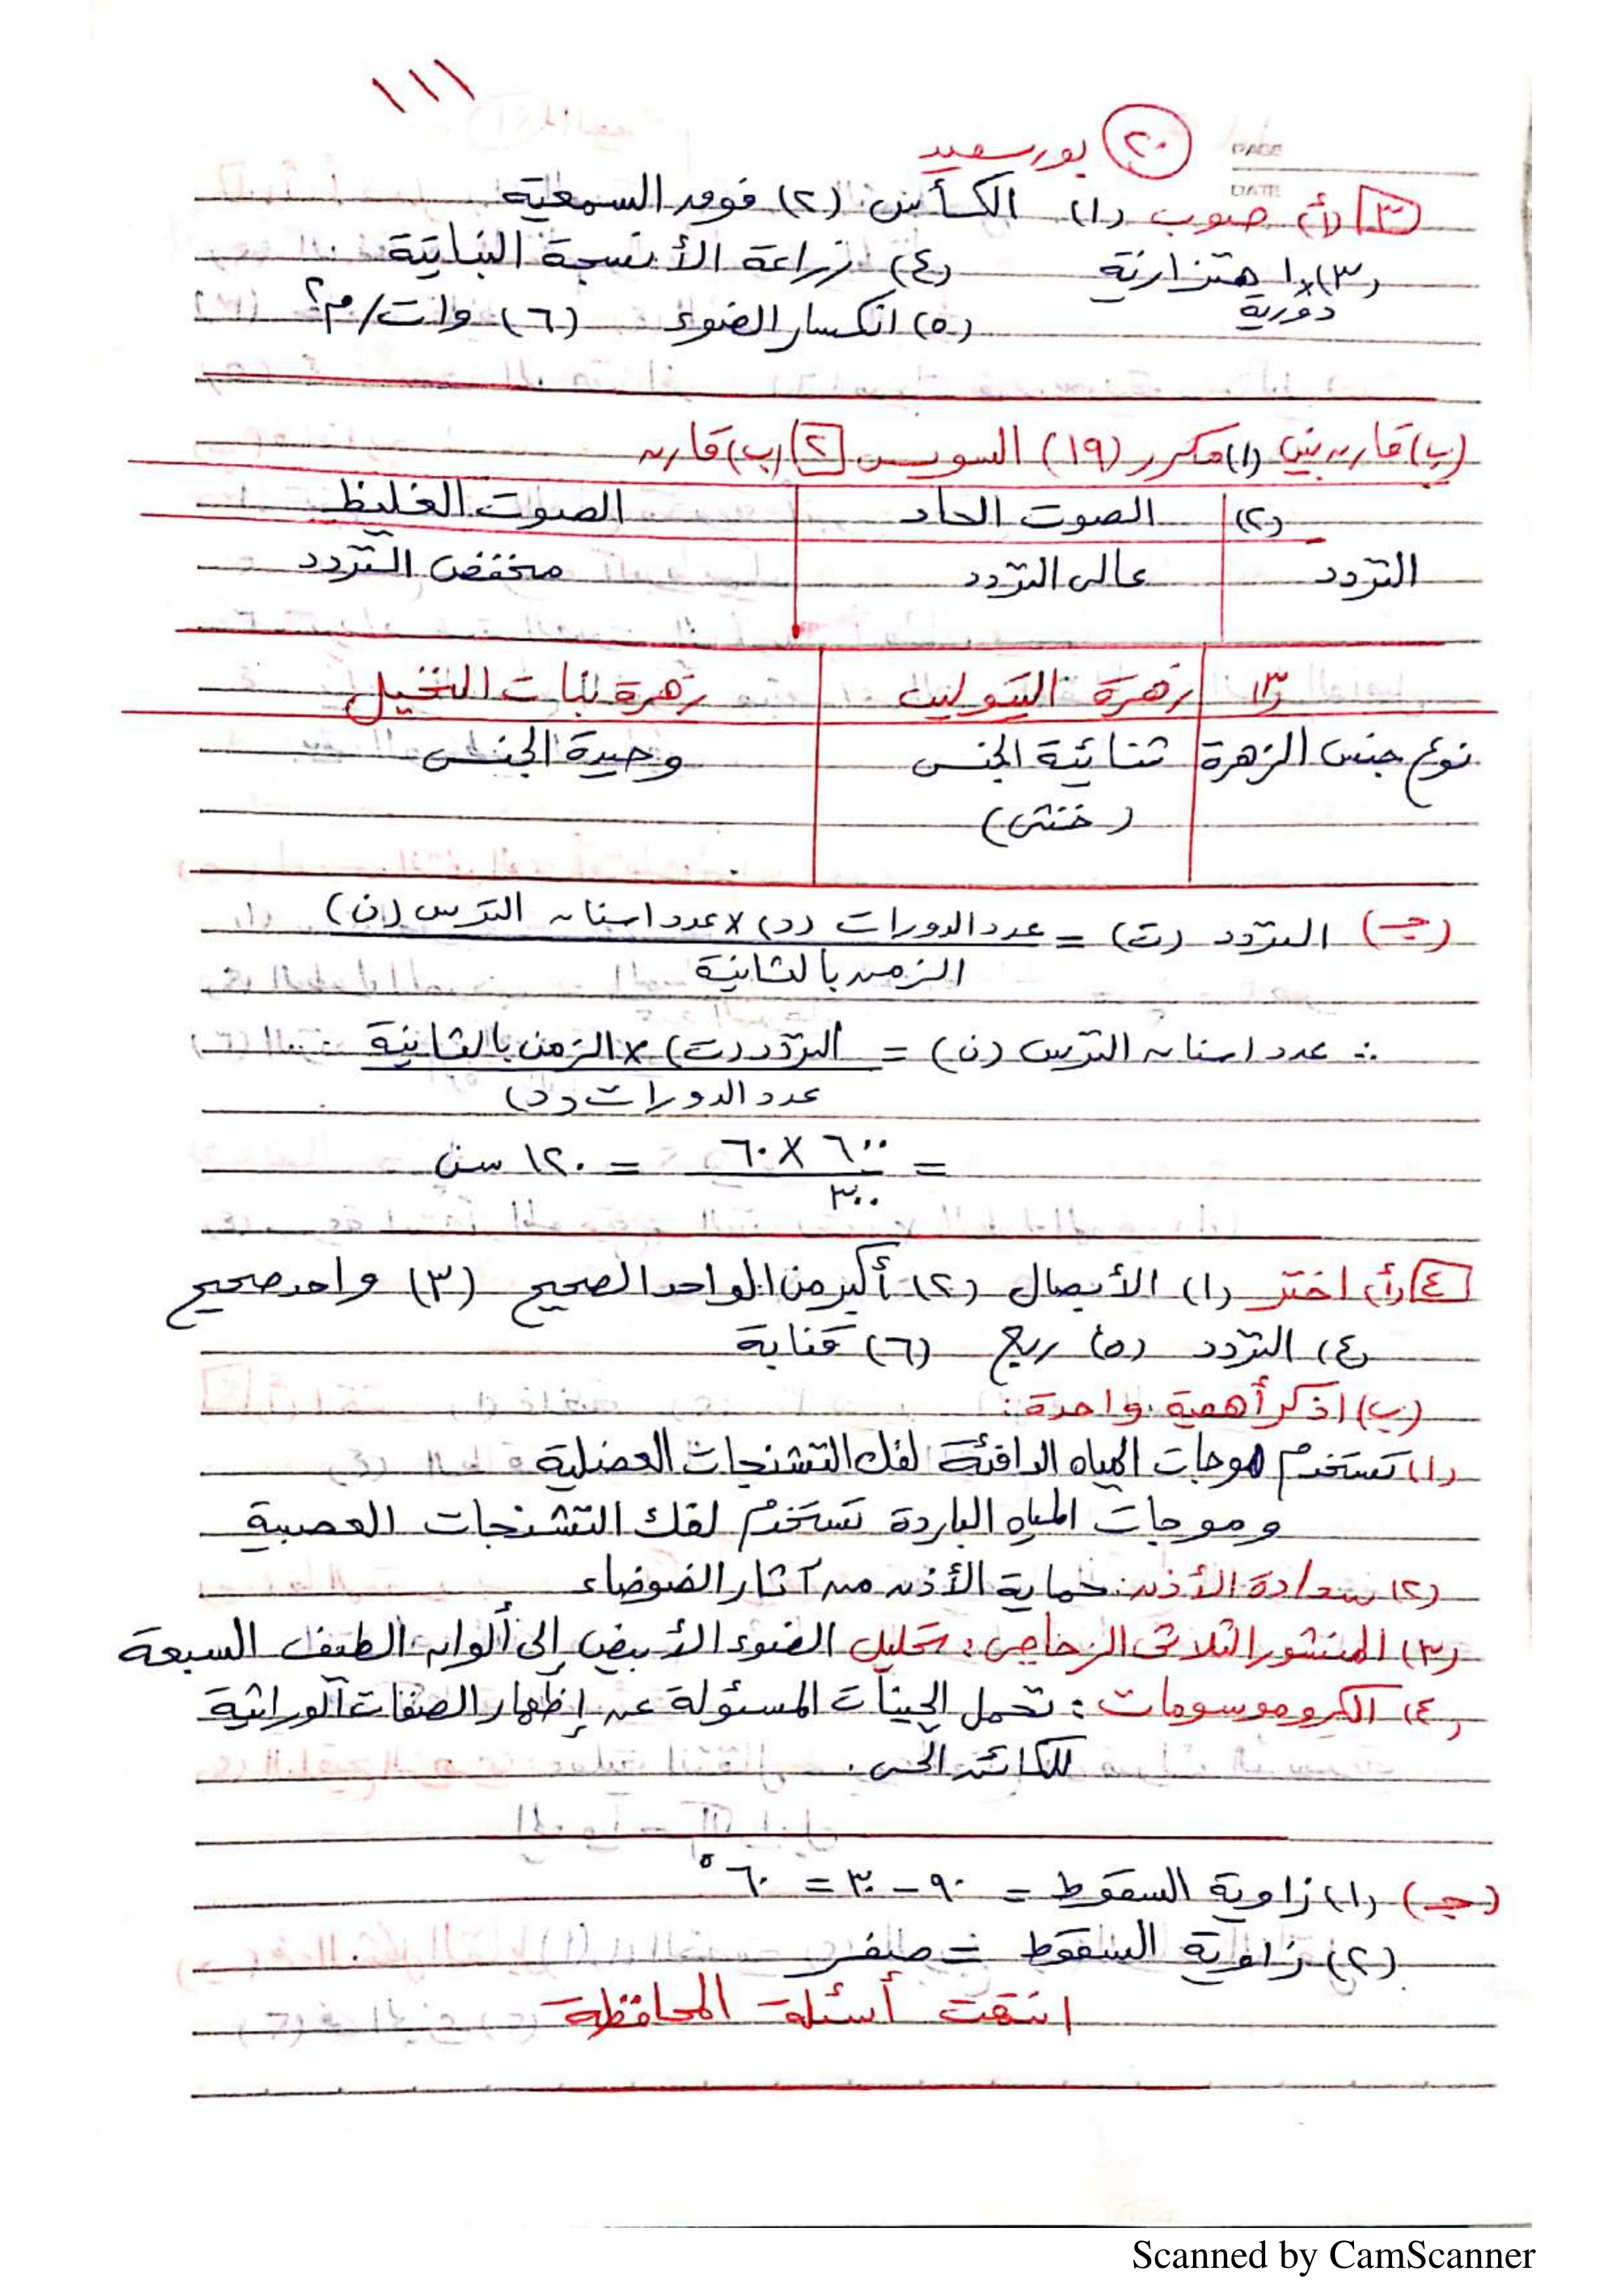 ١١١
(٢٠) بورسعيد
PAGE
DATE
[٣] (أ) صوب (١) الكأس (٢) فوق السمعية
(٣) اهتزازية (٤) زراعة الأنسجة النباتية
دورية
(٥) انكسار الضوء (٦) وات/م٢
(ب) قارن بين (١) مكرر (١٩) السويس [٢] (ب) قارن
(٢) الصوت الحاد الصوت الغليظ
التردد عالى التردد منخفض التردد
(٣) زهرة التيوليب زهرة نبات النخيل
نوع جنس الزهرة ثنائية الجنس وحيدة الجنس
(خنثى)
(جـ) التردد (ت) = عدد الدورات (د) × عدد اسنان الترس (ن)
الزمن بالثانية
∴ عدد اسنان الترس (ن) = التردد (ت) × الزمن بالثانية
عدد الدورات (د)
= ٦٠٠ × ٦٠ = ١٢٠ سن
٣٠٠
[٤] (أ) اختر (١) الأبصال (٢) أكبر من الواحد الصحيح (٣) واحد صحيح
(٤) التردد (٥) ربع (٦) قنابة
(ب) اذكر أهمية واحدة:
(١) تستخدم موجات المياه الدافئة لفك التشنجات العضلية
وموجات المياه الباردة تستخدم لفك التشنجات العصبية
(٢) سدادة الأذن: حماية الأذن من آثار الضوضاء
(٣) المنشور الثلاثى الزجاجى: تحليل الضوء الأبيض إلى ألوان الطيف السبعة
(٤) الكروموسومات: تحمل الجينات المسئولة عن إظهار الصفات الوراثية
للكائن الحى.
(جـ) (١) زاوية السقوط = ٩٠ - ٣٠ = ٦٠°
(٢) زاوية السقوط = صفر
انتهت أسئلة المحافظة
Scanned by CamScanner